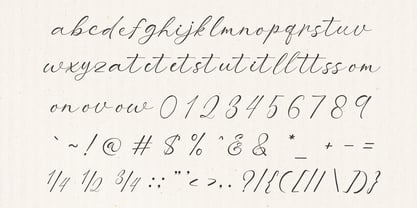 abcdefghijklmnopqrstuv
wxyzatetetststutitllttssom
onovoow0123456789
`~!@#$%^&&*_+-=
1/4 1/2 3/4:;"'<>,.?/{([|/\])}